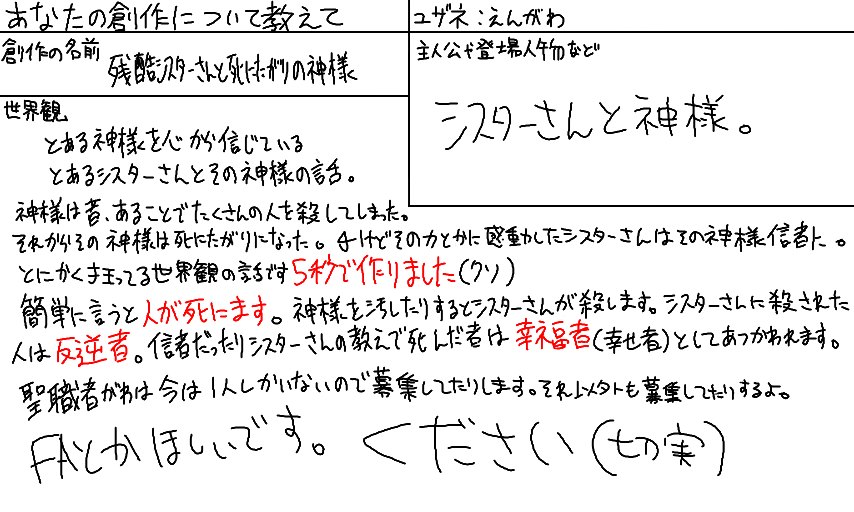 あなたの創作について教えて
ユザネ:えんがわ
創作の名前
残酷シスターさんと死にたがりの神様
主人公や登場人物など
シスターさんと神様。
世界観
とある神様を心から信じている
とあるシスターさんとその神様の話。
神様は昔、あることでたくさんの人を殺してしまった。
それからその神様は死にたがりになった。けどその力とかに感動したシスターさんはその神様信者に。
とにかく狂ってる世界観の話です5秒で作りました(クソ)
簡単に言うと人が死にます。神様を汚したりするとシスターさんが殺します。シスターさんに殺された
人は反逆者。信者だったりシスターさんの教えで死んだ者は幸福者(幸せ者)としてあつかわれます。
聖職者がわは今は1人しかいないので募集してたりします。それ以外も募集してたりするよ。
FAとかほしいです。ください(切実)